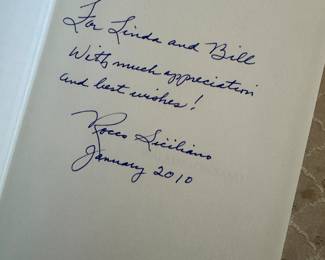 For Linda and Bill
With much appreciation
and best wishes!
Rocco Siciliano
January 2010